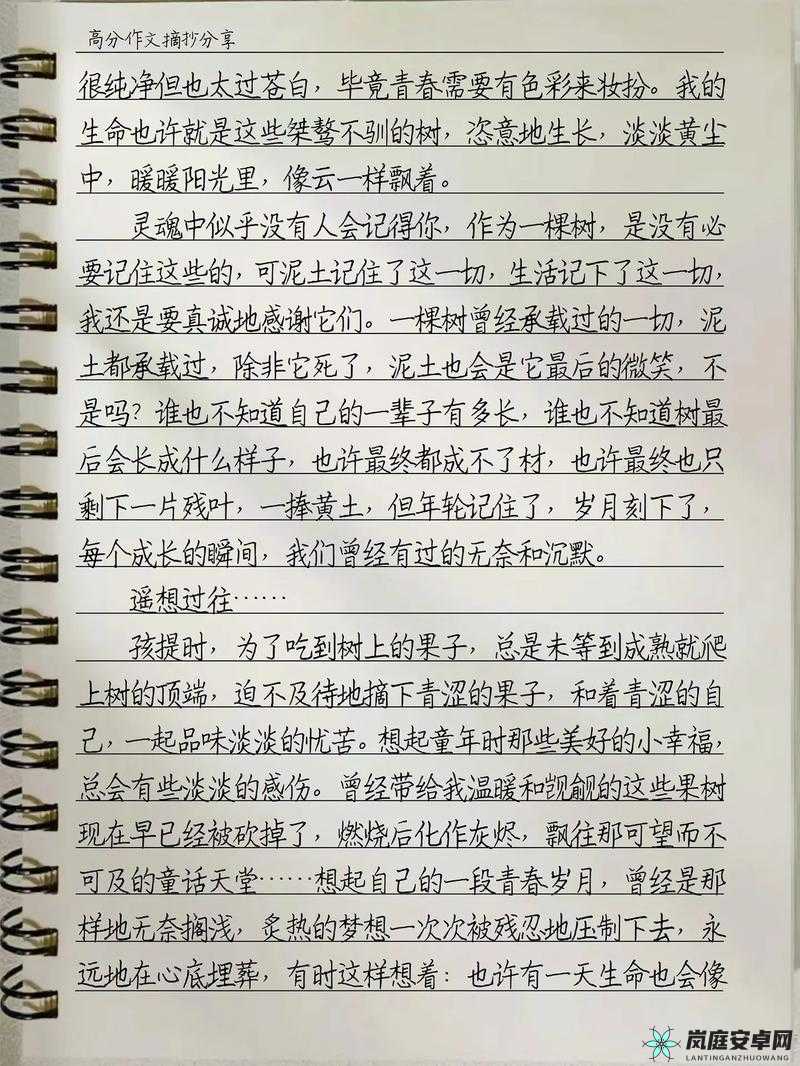 高分作文摘抄分享
很纯净但也太过苍白，毕竟青春需要有色彩来妆扮。我的
生命也许就是这些桀骜不驯的树，恣意地生长，淡淡黄尘
中，暖暖阳光里，像云一样飘着。
灵魂中似乎没有人会记得你，作为一棵树，是没有必
要记住这些的，可泥土记住了这一切，生活记下了这一切，
我还是要真诚地感谢它们。一棵树曾经承载过的一切，泥
土都承载过，除非它死了，泥土也会是它最后的微笑，不
是吗？谁也不知道自己的一辈子有多长，谁也不知道树最
后会长成什么样子，也许最终都成不了材，也许最终也只
剩下一片残叶，一捧黄土，但年轮记住了，岁月刻下了，
每个成长的瞬间，我们曾经有过的无奈和沉默。
遥想过往……
孩提时，为了吃到树上的果子，总是未等到成熟就爬
上树的顶端，迫不及待地摘下青涩的果子，和着青涩的自
己，一起品味淡淡的忧苦。想起童年时那些美好的小幸福，
总会有些淡淡的感伤。曾经带给我温暖和觊觎的这些果树
现在早已经被砍掉了，燃烧后化作灰烬，飘往那可望而不
可及的童话天堂……想起自己的一段青春岁月，曾经是那
样地无奈搁浅，炙热的梦想一次次被残忍地压制下去，永
远地在心底埋葬，有时这样想着：也许有一天生命也会像
岚庭安卓网
LANTINGANZHUOWANG